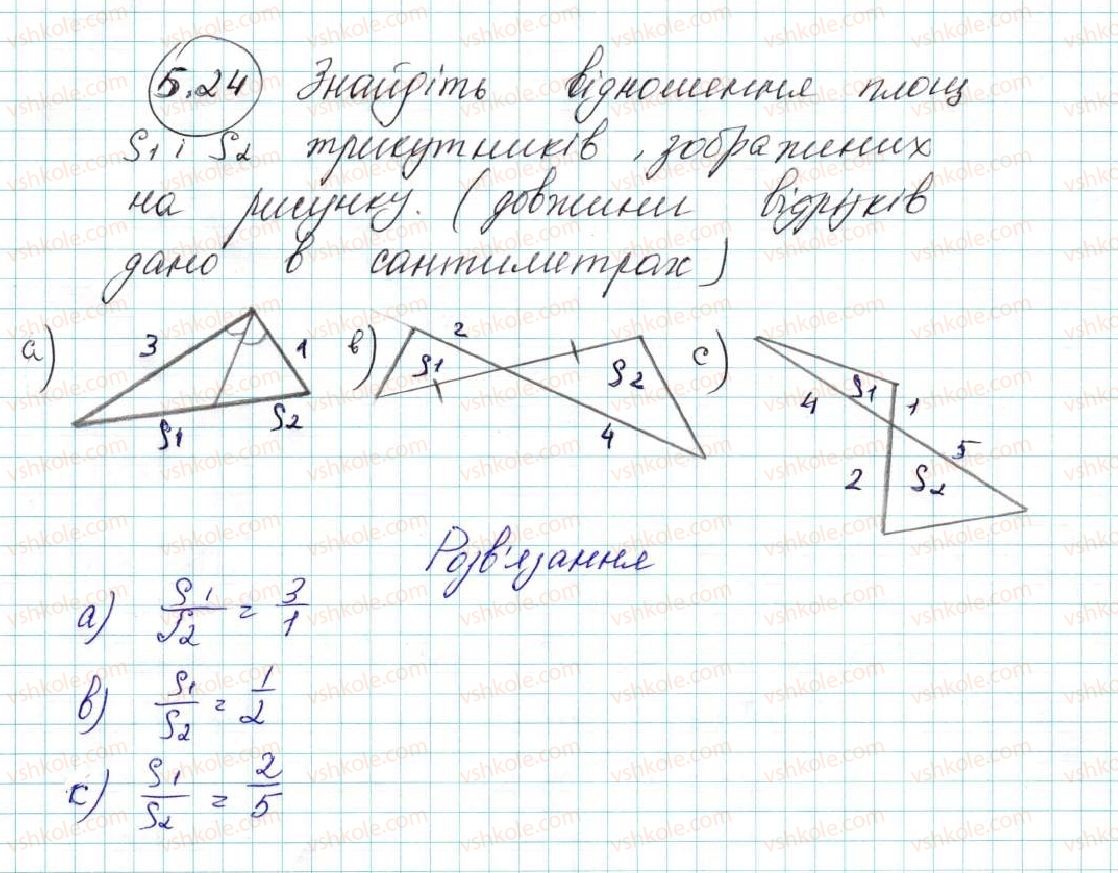 5.24 Знайдіть відношення площ
S1 і S2 трикутників, зображених
на рисунку. (довжини відрізків
дано в сантиметрах)
а) 3 1 S1 S2
в) 2 S1 S2 4
с) 4 S1 1 2 S2 5
Розв'язання
а) S1/S2 = 3/1
в) S1/S2 = 1/2
с) S1/S2 = 2/5
vshkole.com